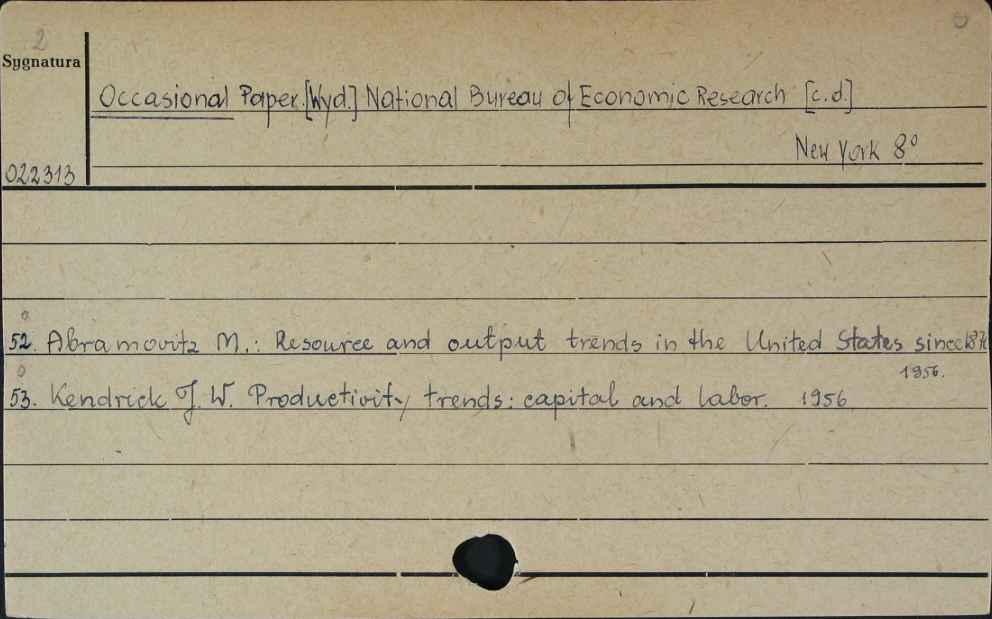 2
Sygnatura
Occasional Paper. [Wyd.] National Bureau of Economic Research [c.d.]
New York 8°
022313
52. Abramovitz M.: Resource and output trends in the United States since 1870
1956.
53. Kendrick J. W. Productivity trends: capital and labor. 1956